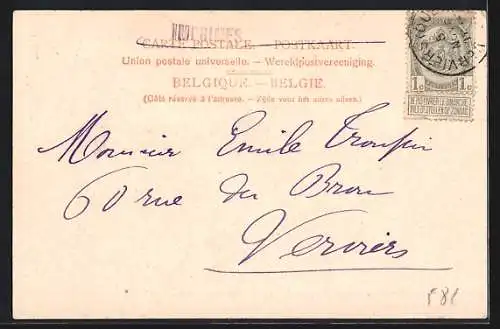 IMPRIMES
CARTE POSTALE. — POSTKAART.
Union postale universelle. — Wereldpostvereeniging.
BELGIQUE. — BELGIE.
(Côté réservé à l'adresse. — Zijde voor het adres alleen.)
1c 1c
NE PAS LIVRER LE DIMANCHE
NIET BESTELLEN OP ZONDAG
Monsieur Emile
60 rue du Brou
Verviers